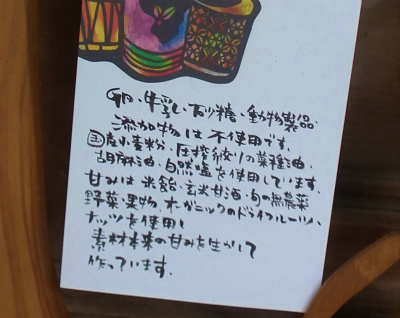 卵・牛乳・砂糖・動物製品・
添加物は不使用です。
国産小麦粉・圧搾絞りの菜種油・
胡麻油・自然塩を使用しています。
甘みは米飴・玄米甘酒・旬の無農薬
野菜・果物、オーガニックのドライフルーツ、
ナッツを使用し
素材本来の甘みを生かして
作っています。